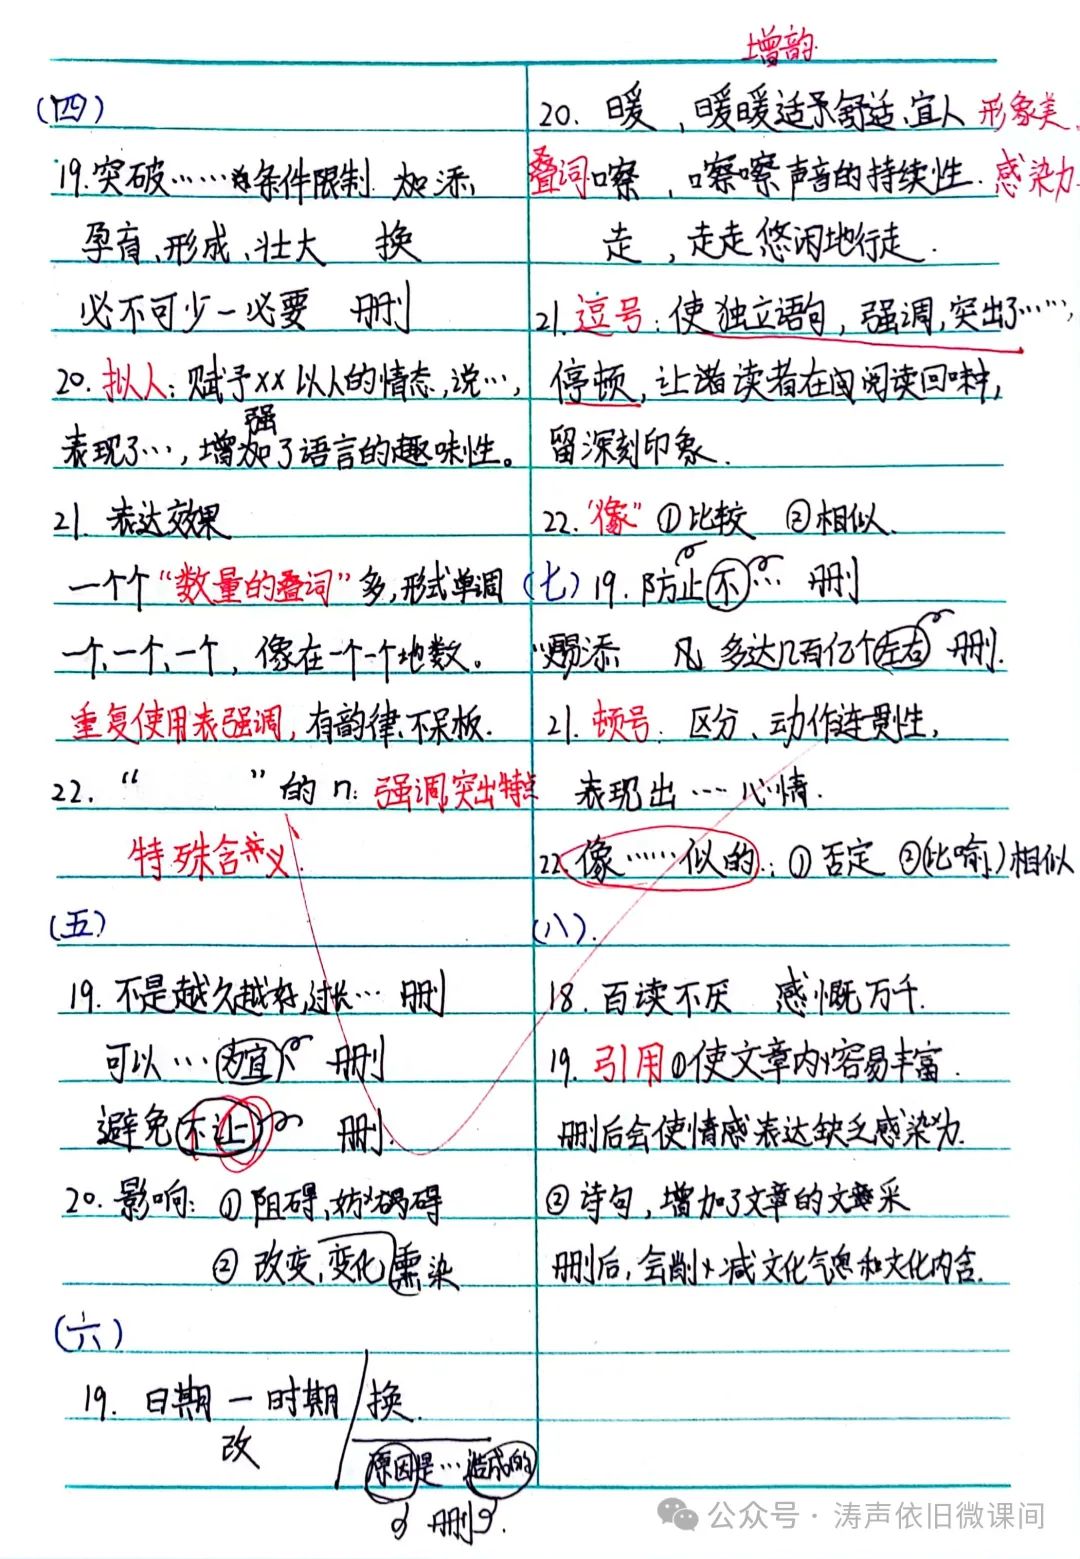 (四)
19.突破……条件限制 加添
孕育、形成、壮大 换
必不可少—必要 删
20.拟人：赋予××以人的情态，说…，
表现了…，增强了语言的趣味性。
21.表达效果
一个个“数量的叠词”多，形式单调
一个、一个、一个，像在一个一个地数。
重复使用表强调，有韵律、不呆板.
22.“ ”的n：强调，突出特点
特殊含义.
(五)
19.不是越久越好，过长… 删
可以…为宜 删
避免不让 删.
20.影响：①阻碍、妨碍
②改变、变化 熏染
(六)
19.日期—时期 换.
改
原因是…造成的
删.
增韵.
20.暖，暖暖适予舒适、宜人 形象美、
叠词 嚓，嚓嚓声音的持续性. 感染力.
走，走走悠闲地行走.
21.逗号：使独立语句，强调，突出了……，
停顿，让读者在阅读回味，
留深刻印象.
22.“像”①比较 ②相似.
(七)19.防止不… 删
赐添 凡 多达几百亿个左右 删.
21.顿号：区分、动作连贯性，
表现出……心情.
22.像……似的：①否定 ②(比喻)相似
(八).
18.百读不厌 感慨万千.
19.引用①使文章内容易丰富.
删后会使情感表达缺乏感染力.
②诗句，增加了文章的文采
删后，会削减文化气息和文化内含.
公众号·涛声依旧微课间